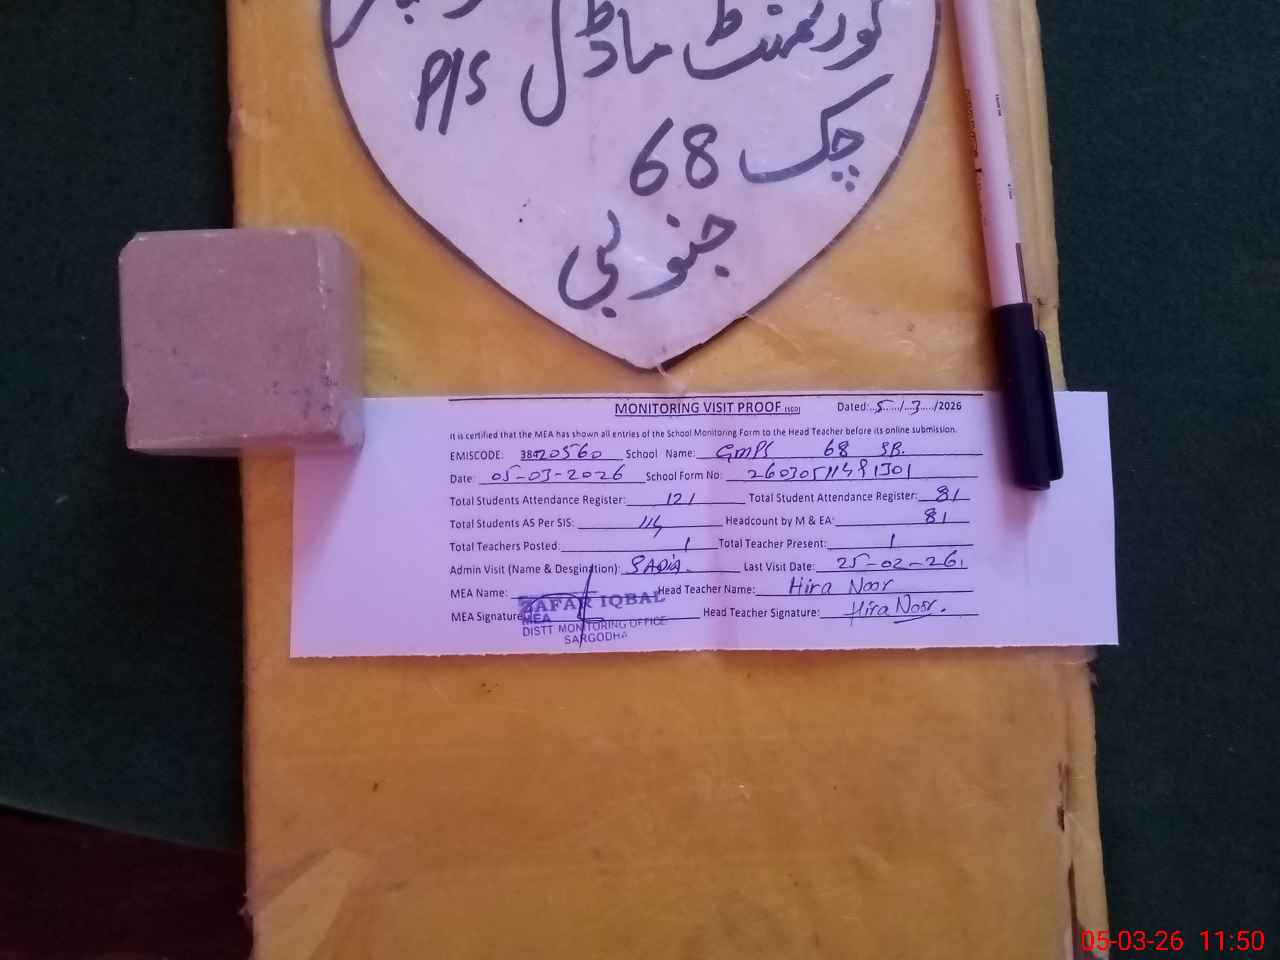 گورنمنٹ ماڈل P/S
چک 68
جنوبی
MONITORING VISIT PROOF (SED) Dated: 5/3/2026
It is certified that the MEA has shown all entries of the School Monitoring Form to the Head Teacher before its online submission.
EMISCODE: 38420560 School Name: GMPS 68 SB.
Date: 05-03-2026 School Form No:
Total Students Attendance Register: 121 Total Student Attendance Register: 81
Total Students AS Per SIS: 114 Headcount by M & EA: 81
Total Teachers Posted: 1 Total Teacher Present: 1
Admin Visit (Name & Desgination): SADIA. Last Visit Date: 25-02-26
MEA Name: Head Teacher Name: Hira Noor
MEA Signature Head Teacher Signature: Hira Noor.
ZAFAR IQBAL
MEA
DISTT MONITORING OFFICE
SARGODHA
05-03-26 11:50